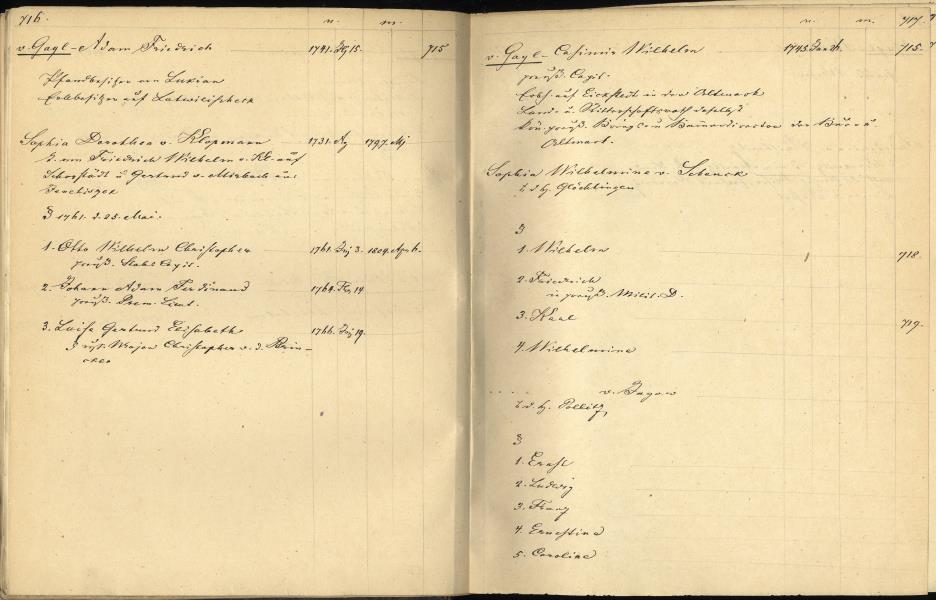 716. n. m.
v. Gayl - Adam Friedrich 1741. 15. 715
Pfandbesitzer von Lukian
Erbbesitzer auf Latwelischeck
Sophia Dorothea v. Klopmann 1731. Ag 1797. Mj
T. von Friedrich Wilhelm v. Kl. auf
u Gertrud v. Mirbach aus
§ 1761. d. 25. Mai.
1. Otto Wilhelm Christopher 1761. 3. 1804. Apr 6.
preuß. Stabs Capit.
2. Johann Adam Ferdinand 1764. 14
preuß. Prem. Lieut.
3. Luise Gertrud Elisabeth 1766. 19.
§ Major Christopher v. d. Brin-
cken
n. m. 717.
v. Gayl - Casimir Wilhelm 1745. 715.
preuß. Capit.
Erbh. auf Eickstedt in der Altmark
Land- u. Ritterschaftsrath daselbst
Kön. preuß. Kriegs u der
Altmark.
Sophia Wilhelmine v. Schenck
T. d. H. Flechtingen
§
1. Wilhelm 718.
2. Friedrich
in preuß. Milit. D.
3. Karl 719.
4. Wilhelmine
. . . . v. Jagow
T. d. H. Pollitz
§
1. Ernst
2. Ludwig
3. Franz
4. Ernestine
5. Caroline